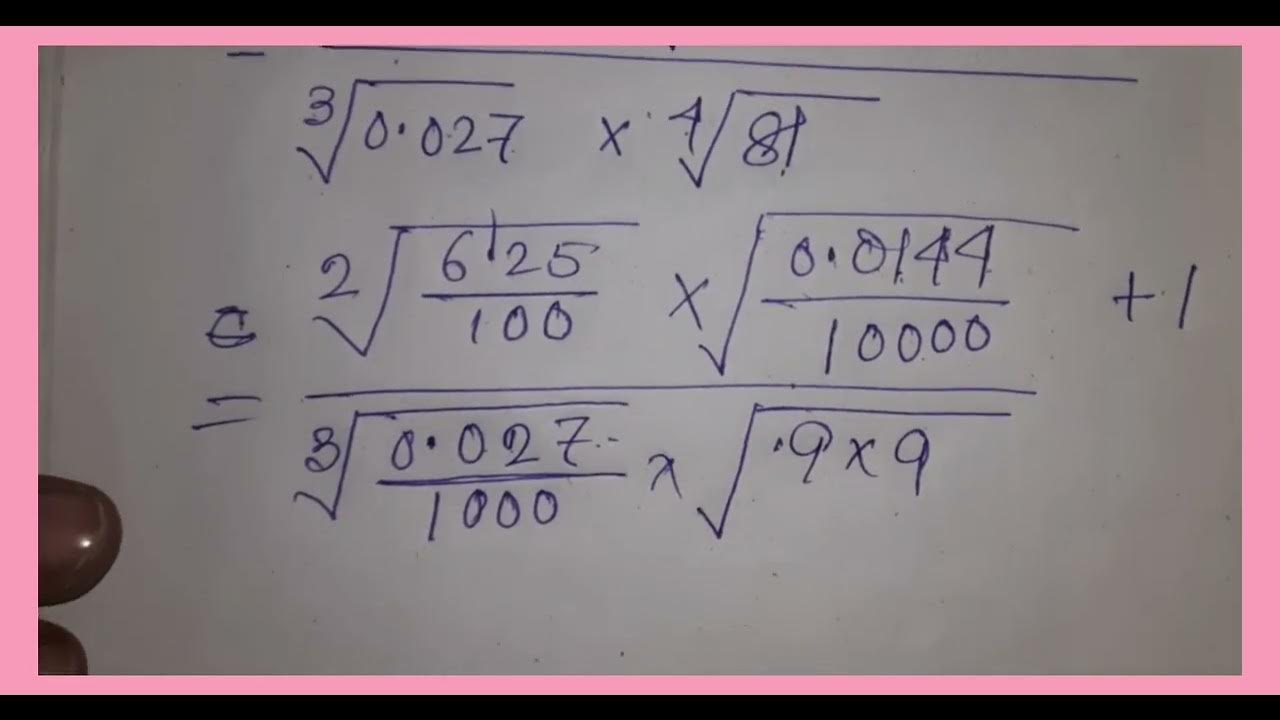 ∛0.027 × ∜81
= ²√(6.25/100) × √(0.0144/10000) + 1
∛(0.027/1000) × √(.9×9)